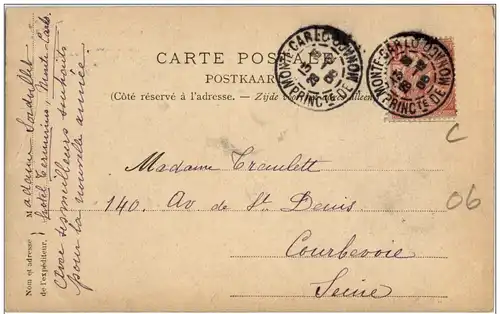 CARTE POSTALE
POSTKAART
(Côté réservé à l'adresse. - Zijde
MONTE-CARLO
PRINCTE DE MON
MONTE-CARLO
PRINCTE DE MON
Madame
140. Av de St Denis
Courbevoie
Seine
C
06
Nom et adresse
de l'expéditeur.
Madame
hotel Terminus, Monte-Carlo
avec ses meilleurs souhaits
pour la nouvelle année.